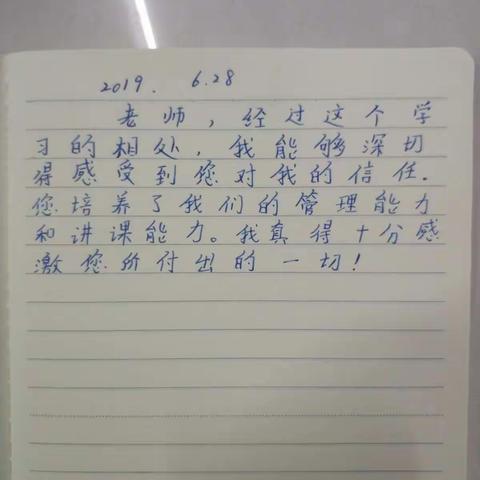 2019. 6.28
老师，经过这个学
习的相处，我能够深切
得感受到您对我的信任.
您培养了我们的管理能力
和讲课能力。我真得十分感
激您所付出的一切！